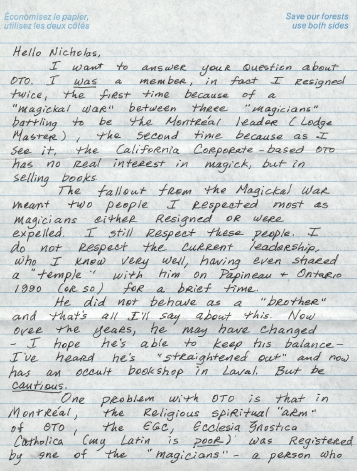 Économisez le papier,
utilisez les deux côtés
Save our forests
use both sides
Hello Nicholas,
I want to answer your Question about
OTO. I was a member, in fact I resigned
twice, the first time because of a
"magickal war" between three "magicians"
battling to be the Montréal leader (Lodge
Master), the second time because as I
see it, the California Corporate-based OTO
has no real interest in magick, but in
selling books
The fallout from the Magickal War
meant two people I respected most as
magicians either Resigned or were
expelled. I still Respect these people. I
do not Respect the current leadership,
who I know very well, having even shared
a "temple" with him on Papineau + Ontario
1990 (or so) for a brief time.
He did not behave as a "brother"
and that's all I'll say about this. Now
over the years, he may have changed
- I hope he's able to keep his balance -
I've heard he's "straightened out" and now
has an occult bookshop in Laval. But be
cautious.
One problem with OTO is that in
Montréal, the Religious spiritual "arm"
of OTO, the EGC, Ecclesia Gnostica
Catholica (my Latin is poor) was Registered
by one of the "magicians" - a person who